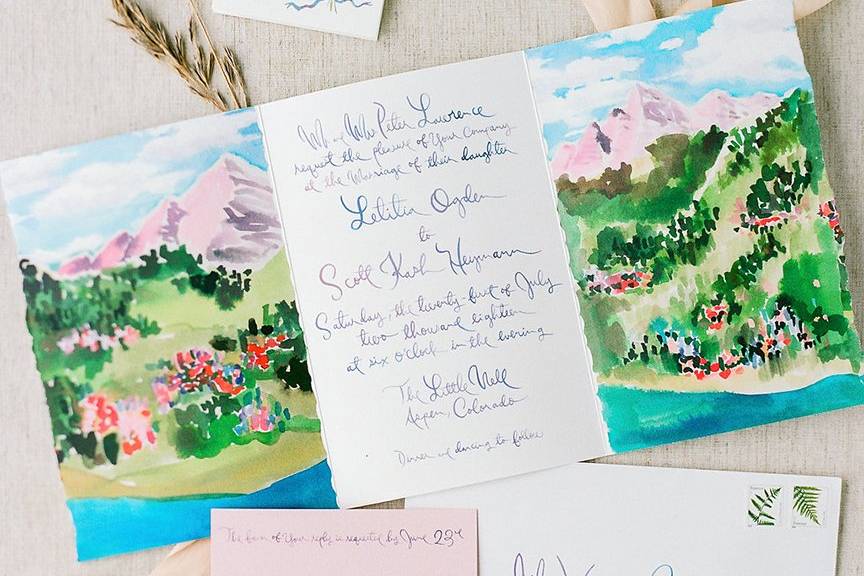 Mr and Mrs Peter Lawrence
request the pleasure of Your Company
at the Marriage of their daughter
Letitia Ogden
to
Scott Kash Heymann
Saturday, the twenty-first of July
two thousand eighteen
at six o'clock in the evening
The Little Nell
Aspen, Colorado
Dinner and dancing to follow
The favor of Your reply is requested by June 23rd